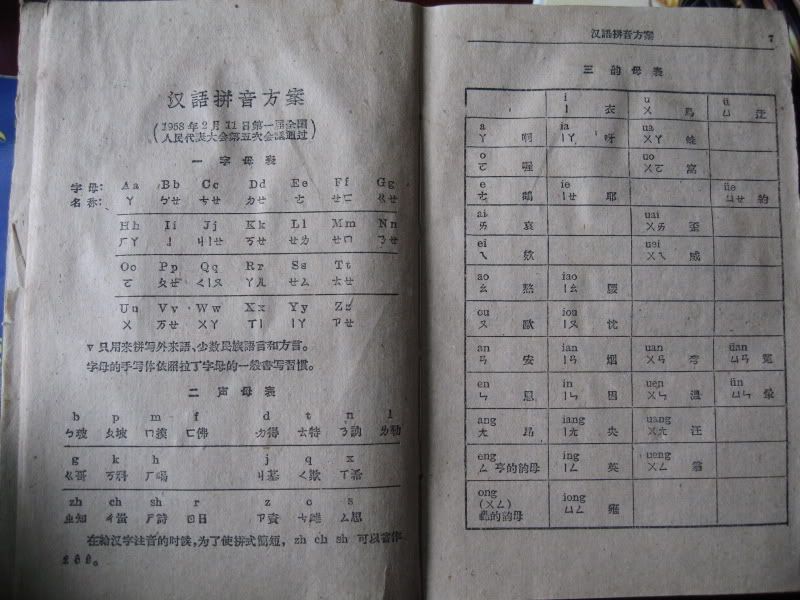 汉語拼音方案
(1958年2月11日第一届全国
人民代表大会第五次会議通过)
一 字母表
字母： Aa Bb Cc Dd Ee Ff Gg
名称： ㄚ ㄅㄝ ㄘㄝ ㄉㄝ ㄜ ㄝㄈ ㄍㄝ
Hh Ii Jj Kk Ll Mm Nn
ㄏㄚ ㄧ ㄐㄧㄝ ㄎㄝ ㄝㄌ ㄝㄇ ㄋㄝ
Oo Pp Qq Rr Ss Tt
ㄛ ㄆㄝ ㄑㄧㄡ ㄚㄦ ㄝㄙ ㄊㄝ
Uu Vv Ww Xx Yy Zz
ㄨ ㄪㄝ ㄨㄚ ㄒㄧ ㄧㄚ ㄗㄝ
v 只用来拼写外来語、少数民族語言和方言。
字母的手写体依照拉丁字母的一般書写習慣。
二 声母表
b p m f d t n l
ㄅ玻 ㄆ坡 ㄇ摸 ㄈ佛 ㄉ得 ㄊ特 ㄋ訥 ㄌ勒
g k h j q x
ㄍ哥 ㄎ科 ㄏ喝 ㄐ基 ㄑ欺 ㄒ希
zh ch sh r z c s
ㄓ知 ㄔ蚩 ㄕ詩 ㄖ日 ㄗ資 ㄘ雌 ㄙ思
在給汉字注音的时候，为了使拼式簡短，zh ch sh 可以省作
ẑ ĉ ŝ。
汉語拼音方案 7
三 韵母表
i u ü
ㄧ 衣 ㄨ 烏 ㄩ 迂
a ia ua
ㄚ 啊 ㄧㄚ 呀 ㄨㄚ 蛙
o uo
ㄛ 喔 ㄨㄛ 窩
e ie üe
ㄜ 鵝 ㄧㄝ 耶 ㄩㄝ 約
ai uai
ㄞ 哀 ㄨㄞ 歪
ei uei
ㄟ 欸 ㄨㄟ 威
ao iao
ㄠ 熬 ㄧㄠ 腰
ou iou
ㄡ 歐 ㄧㄡ 忧
an ian uan üan
ㄢ 安 ㄧㄢ 烟 ㄨㄢ 弯 ㄩㄢ 冤
en in uen ün
ㄣ 恩 ㄧㄣ 因 ㄨㄣ 温 ㄩㄣ 暈
ang iang uang
ㄤ 昂 ㄧㄤ 央 ㄨㄤ 汪
eng ing ueng
ㄥ 亨的韵母 ㄧㄥ 英 ㄨㄥ 翁
ong iong
(ㄨㄥ) ㄩㄥ 雍
轟的韵母